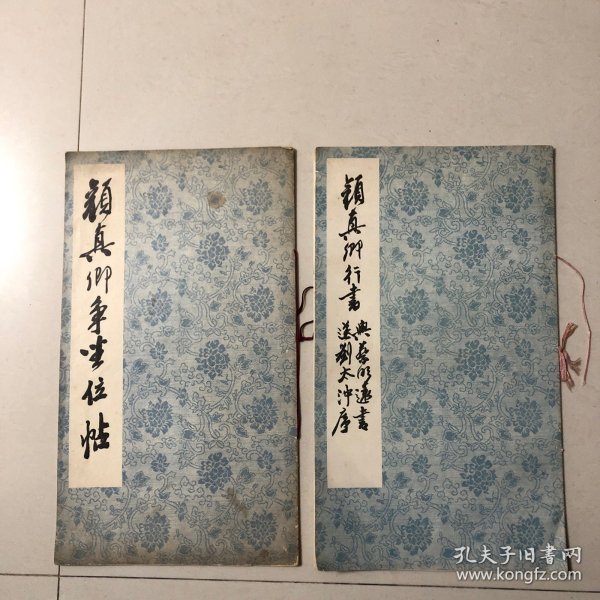 顔真卿争坐位帖
顔真卿行書
與蔡明遠書
送劉太沖序
孔夫子旧书网
www.kongfz.com